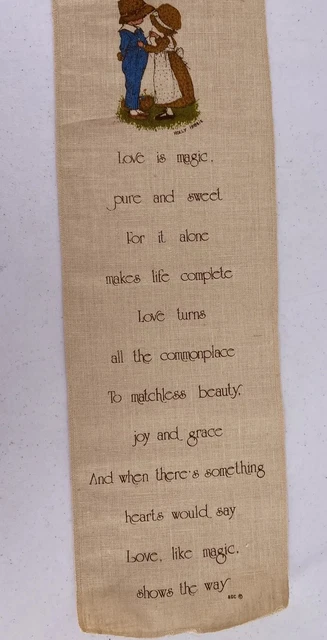 HOLLY HOBBIE
Love is magic,
pure and sweet
For it alone
makes life complete
Love turns
all the commonplace
To matchless beauty,
joy and grace
And when there's something
hearts would say
Love, like magic,
shows the way
AGC ©